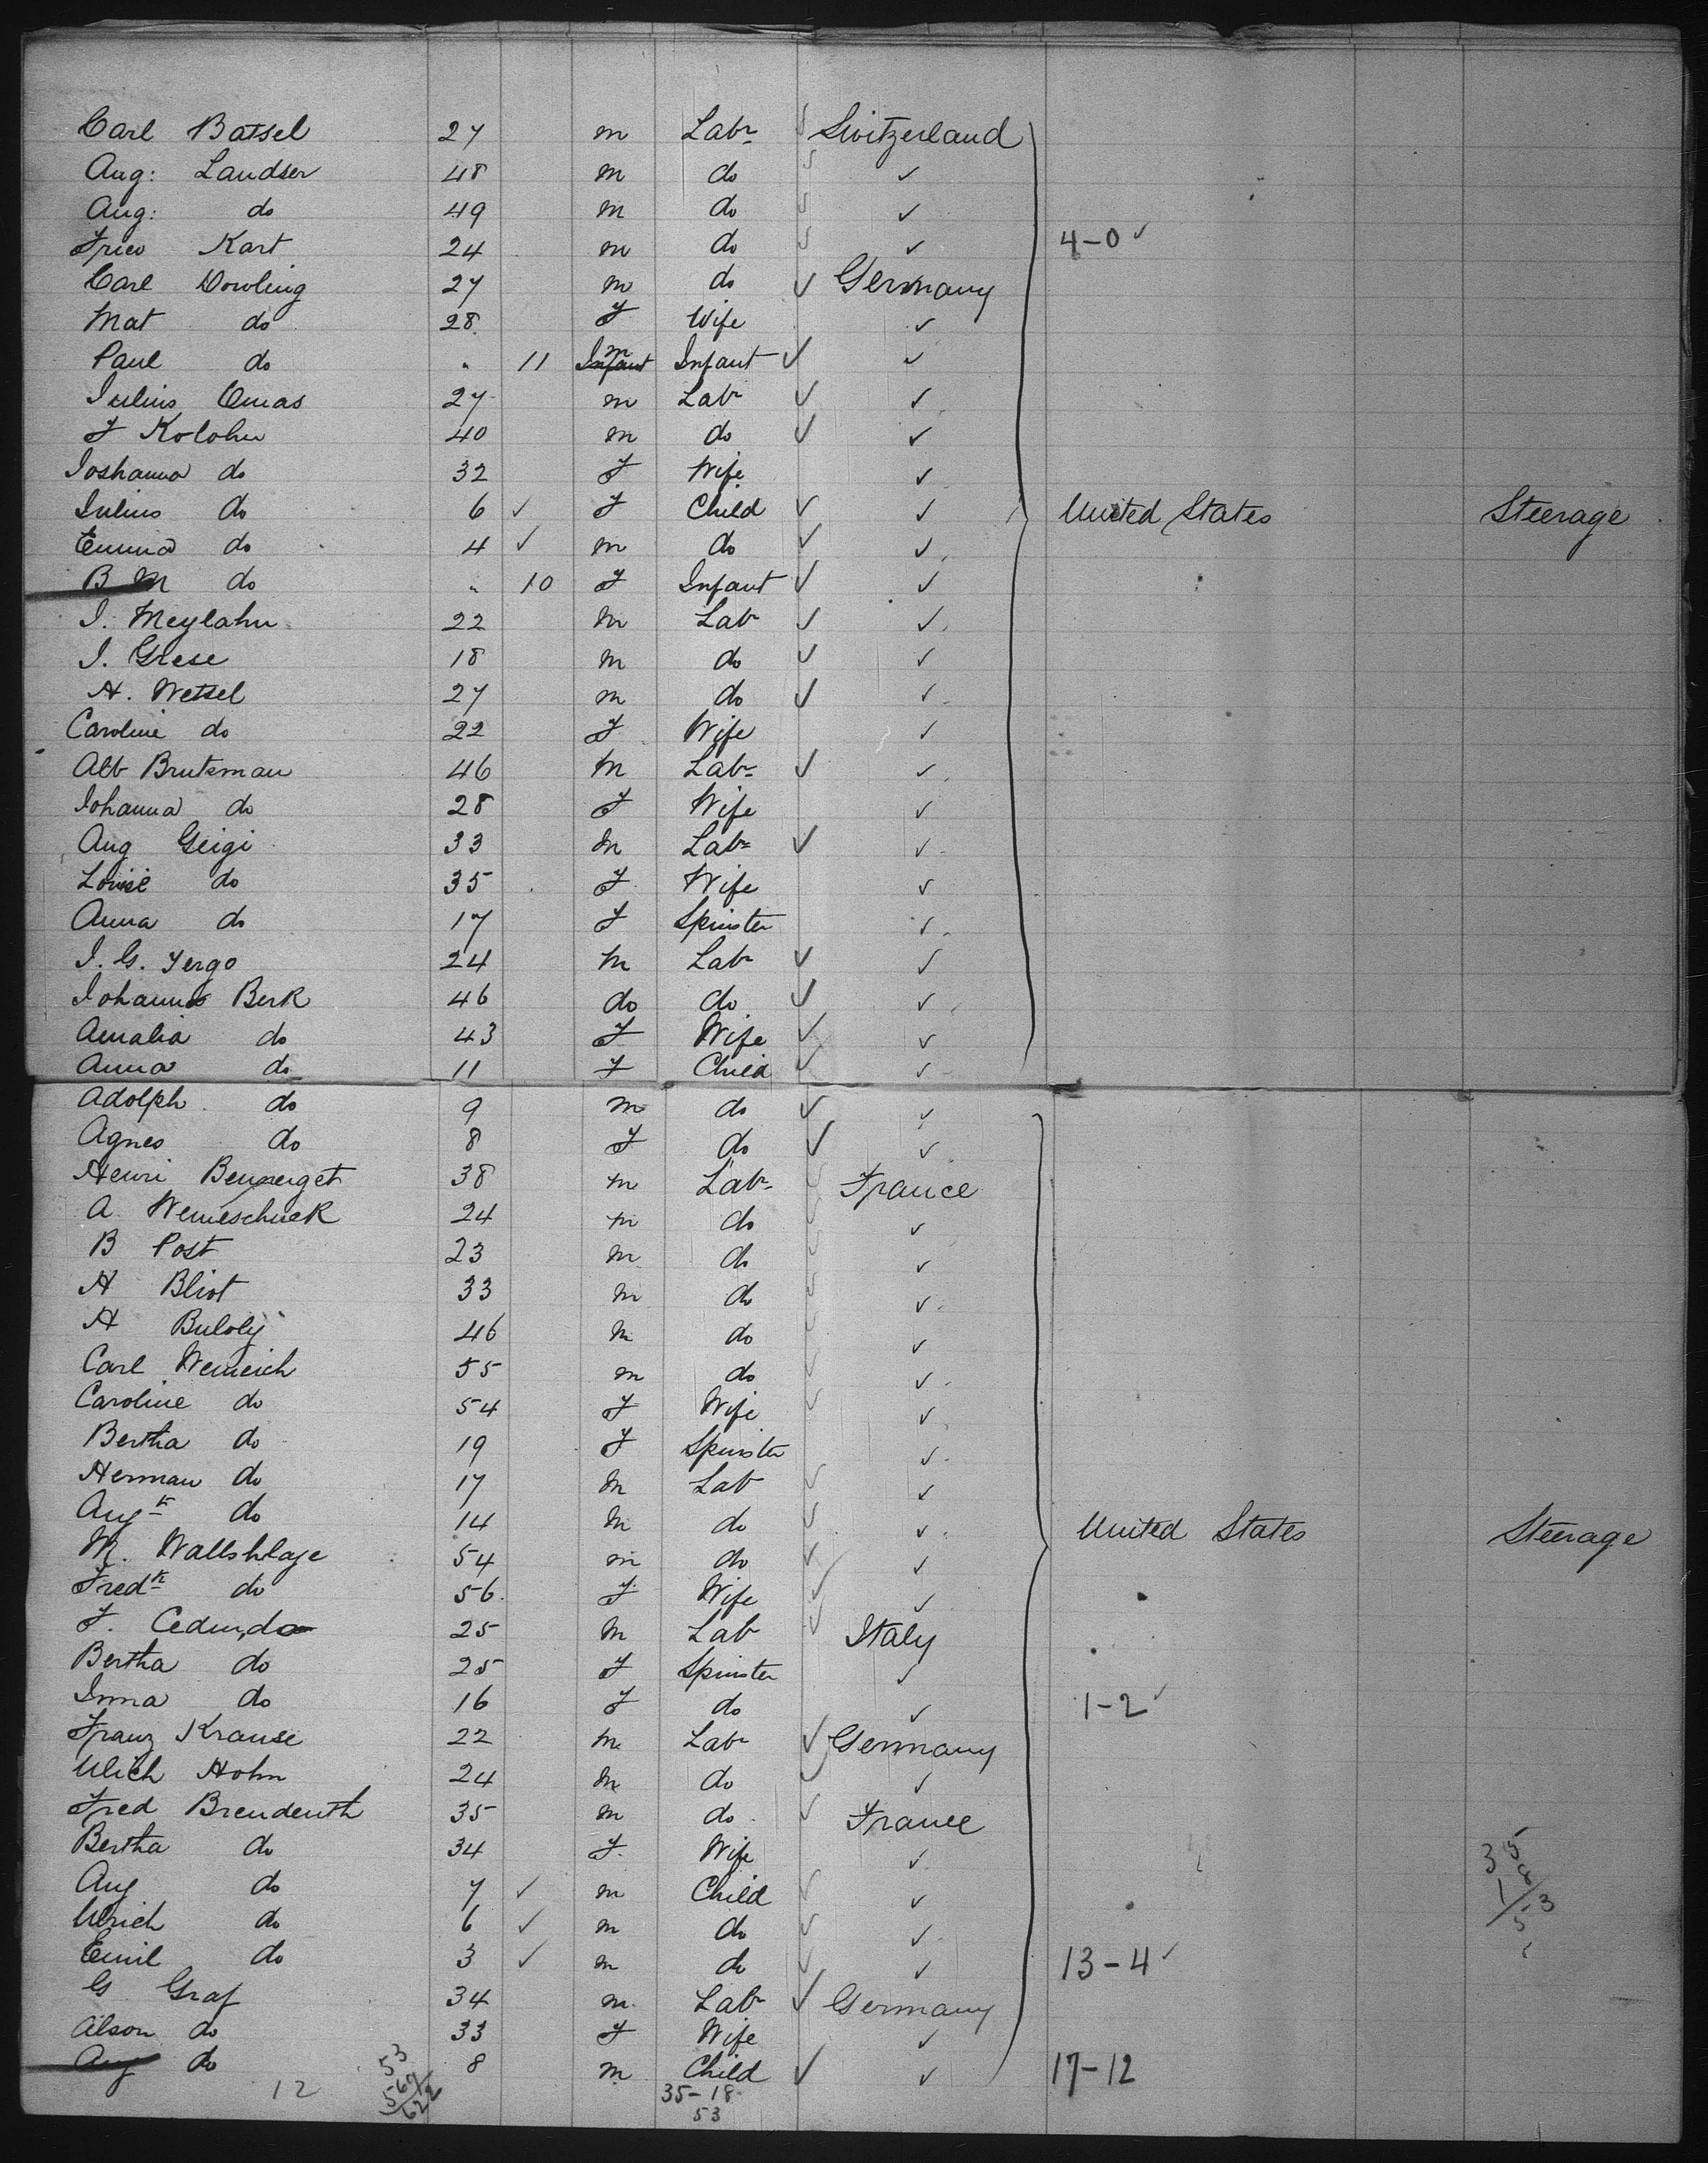 Carl Batsel 27 m Labr Switzerland
Aug: Landser 48 m do ✓
Aug: do 49 m do ✓
Kart 24 m do ✓ 4-0 ✓
Carl Dowling 27 m do ✓ Germany
Mat do 28 F Wife ✓
Paul do " 11 m Infant ✓ ✓
Julius 27 m Labr ✓ ✓
F Kolohn 40 m do ✓ ✓
Joshanna do 32 F Wife ✓
Julius do 6 ✓ F Child ✓ ✓ United States Steerage
Emma do 4 ✓ m do ✓ ✓
B M do " 10 F Infant ✓ ✓
I. Meylahn 22 m Labr ✓ ✓
I. Grese 18 m do ✓ ✓
H. Wetsel 27 m do ✓ ✓
Caroline do 22 F Wife ✓
Alb Brutsman 46 m Labr ✓ ✓
Johanna do 28 F Wife ✓
Aug Geigi 33 m Labr ✓ ✓
Louise do 35 F Wife ✓
Anna do 17 F Spinster ✓
I. G. Yergo 24 m Labr ✓ ✓
Johannes Berk 46 do do ✓ ✓
Amalia do 43 F Wife ✓ ✓
Anna do 11 F Child ✓ ✓
Adolph do 9 m do ✓ ✓
Agnes do 8 F do ✓ ✓
Henri 38 m Labr France
A. 24 m do ✓
B Post 23 m do ✓
H Bliot 33 m do ✓
H Buloly 46 m do ✓
Carl Wemeich 55 m do ✓
Caroline do 54 F Wife ✓
Bertha do 19 F Spinster ✓
Herman do 17 m Lab ✓
Augk do 14 m do ✓ United States Steerage
M. Wallshlage 54 m do ✓
Fredk do 56 F Wife ✓
F. 25 m Lab Italy
Bertha do 25 F Spinster ✓
Inna do 16 F do ✓ 1-2 ✓
Franz Krause 22 m Labr ✓ Germany
Ulich Hohn 24 m do ✓
Fred Brendenth 35 m do ✓ France
Bertha do 34 F Wife ✓
Aug do 7 ✓ m Child ✓
Ulrich do 6 ✓ m do ✓
Emil do 3 ✓ m do ✓ 13-4 ✓
G Graf 34 m Labr ✓ Germany
Alson do 33 F Wife ✓
Aug do 8 m Child ✓ ✓ 17-12
12 53 567 622 35-18
53